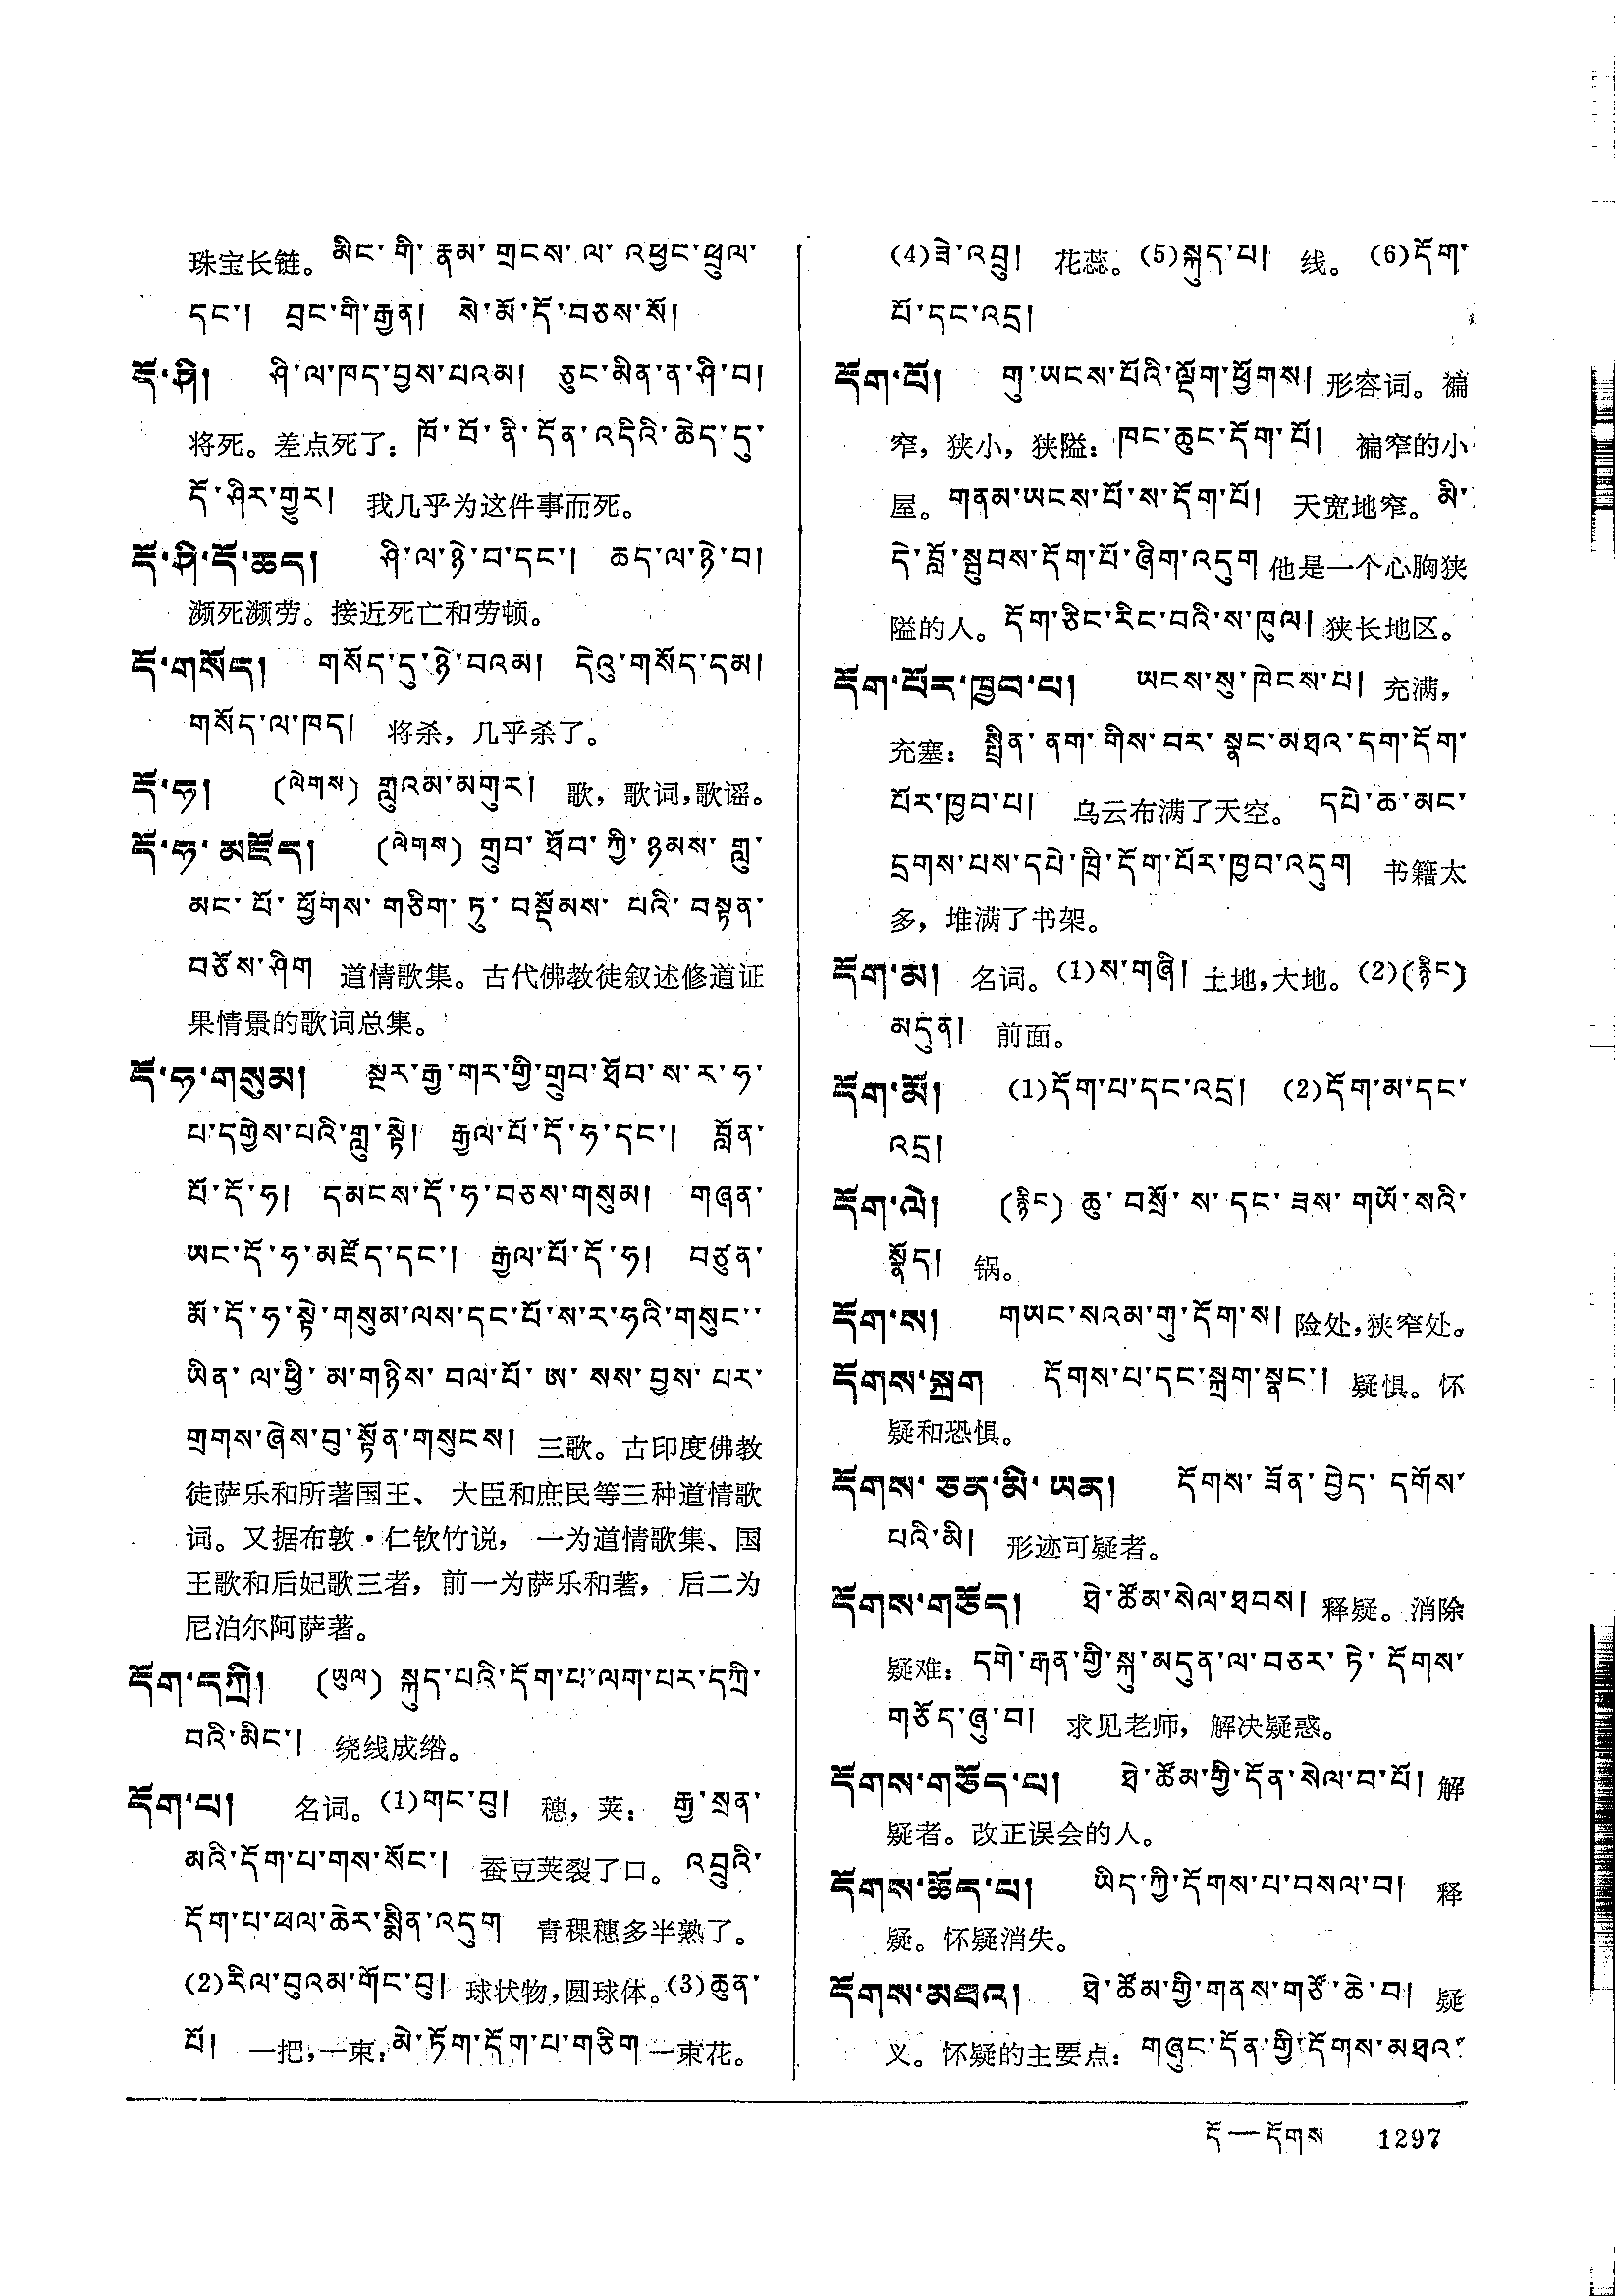 珠宝长链。 མིང་གི་རྣམ་གྲངས་ལ་འཕྱང་ཕྲུལ་
དང་། བྲང་གི་རྒྱན། སེ་མོ་དོ་བཅས་སོ།
དོ་ཤི། ཤི་ལ་ཁད་བྱས་པའམ། ཅུང་མིན་ན་ཤི་བ།
将死。差点死了： ཁོ་བོ་ནི་དོན་འདིའི་ཆེད་དུ་
དོ་ཤིར་གྱུར། 我几乎为这件事而死。
དོ་ཤི་དོ་ཆད། ཤི་ལ་ཉེ་བ་དང་། ཆད་ལ་ཉེ་བ།
濒死濒劳。接近死亡和劳顿。
དོ་གསོད། གསོད་དུ་ཉེ་བའམ། དེའུ་གསོད་དམ།
གསོད་ལ་ཁད། 将杀，几乎杀了。
དོ་ཧ། (ལེགས) གླུའམ་མགུར། 歌，歌词，歌谣。
དོ་ཧ་མཛོད། (ལེགས) གྲུབ་ཐོབ་ཀྱི་ཉམས་གླུ་
མང་པོ་ཕྱོགས་གཅིག་ཏུ་བསྡོམས་པའི་བསྟན་
བཅོས་ཤིག 道情歌集。古代佛教徒叙述修道证
果情景的歌词总集。
དོ་ཧ་གསུམ། སྔར་རྒྱ་གར་གྱི་གྲུབ་ཐོབ་ས་ར་ཧ་
པ་དགྱེས་པའི་གླུ་སྟེ། རྒྱལ་པོ་དོ་ཧ་དང་། བློན་
པོ་དོ་ཧ། དམངས་དོ་ཧ་བཅས་གསུམ། གཞན་
ཡང་དོ་ཧ་མཛོད་དང་། རྒྱལ་པོ་དོ་ཧ། བཙུན་
མོ་དོ་ཧ་སྟེ་གསུམ་ལས་དང་པོ་ས་ར་ཧའི་གསུང་
ཡིན་ལ་ཕྱི་མ་གཉིས་བལ་པོ་ཨ་སས་བྱས་པར་
གྲགས་ཞེས་བུ་སྟོན་གསུངས། 三歌。古印度佛教
徒萨乐和所著国王、大臣和庶民等三种道情歌
词。又据布敦·仁钦竹说，一为道情歌集、国
王歌和后妃歌三者，前一为萨乐和著，后二为
尼泊尔阿萨著。
དོག་དཀྲི། (ཡུལ) སྐུད་པའི་དོག་པ་ལག་པར་དཀྲི་
བའི་མིང་། 绕线成绺。
དོག་པ། 名词。(1)གང་བུ། 穗，荚： རྒྱ་སྲན་
མའི་དོག་པ་གས་སོང་། 蚕豆荚裂了口。 འབྲུའི་
དོག་པ་ཕལ་ཆེར་སྨིན་འདུག 青稞穗多半熟了。
(2)རིལ་བུའམ་གོང་བུ། 球状物，圆球体。(3)ཆུན་
པོ། 一把，一束： མེ་ཏོག་དོག་པ་གཅིག 一束花。
(4)ཟེ་འབྲུ། 花蕊。(5)སྐུད་པ། 线。 (6)དོག་
པོ་དང་འདྲ།
དོག་པོ། གུ་ཡངས་པོའི་ལྡོག་ཕྱོགས། 形容词。褊
窄，狭小，狭隘： ཁང་ཆུང་དོག་པོ། 褊窄的小
屋。 གནམ་ཡངས་པོ་ས་དོག་པོ། 天宽地窄。 མི་
དེ་བློ་སྦུབས་དོག་པོ་ཞིག་འདུག 他是一个心胸狭
隘的人。 དོག་ཅིང་རིང་བའི་ས་ཁུལ། 狭长地区。
དོག་པོར་ཁྱབ་པ། ཡངས་སུ་ཁེངས་པ། 充满，
充塞： སྤྲིན་ནག་གིས་བར་སྣང་མཐའ་དག་དོག་
པོར་ཁྱབ་པ། 乌云布满了天空。 དཔེ་ཆ་མང་
དྲགས་པས་དཔེ་ཁྲི་དོག་པོར་ཁྱབ་འདུག 书籍太
多，堆满了书架。
དོག་མ། 名词。(1)ས་གཞི། 土地，大地。(2)(རྙིང)
མདུན། 前面。
དོག་མོ། (1)དོག་པ་དང་འདྲ། (2)དོག་མ་དང་
འདྲ།
དོག་ལེ། (རྙིང) ཆུ་བསྲོ་ས་དང་ཟས་གཡོ་སའི་
སྣོད། 锅。
དོག་ས། གཡང་སའམ་གུ་དོག་ས། 险处，狭窄处。
དོགས་སྐྲག དོགས་པ་དང་སྐྲག་སྣང་། 疑惧。怀
疑和恐惧。
དོགས་ཅན་མི་ཡན། དོགས་ཟོན་བྱེད་དགོས་
པའི་མི། 形迹可疑者。
དོགས་གཅོད། ཐེ་ཚོམ་སེལ་ཐབས། 释疑。消除
疑难： དགེ་རྒན་གྱི་སྐུ་མདུན་ལ་བཅར་ཏེ་དོགས་
གཅོད་ཞུ་བ། 求见老师，解决疑惑。
དོགས་གཅོད་པ། ཐེ་ཚོམ་གྱི་དོན་སེལ་བ་པོ། 解
疑者。改正误会的人。
དོགས་ཆོད་པ། ཡིད་ཀྱི་དོགས་པ་བསལ་བ། 释
疑。怀疑消失。
དོགས་མཐའ། ཐེ་ཚོམ་གྱི་གནས་གཙོ་ཆེ་བ། 疑
义。怀疑的主要点： གཞུང་དོན་གྱི་དོགས་མཐའ་
དོ—དོགས 1297